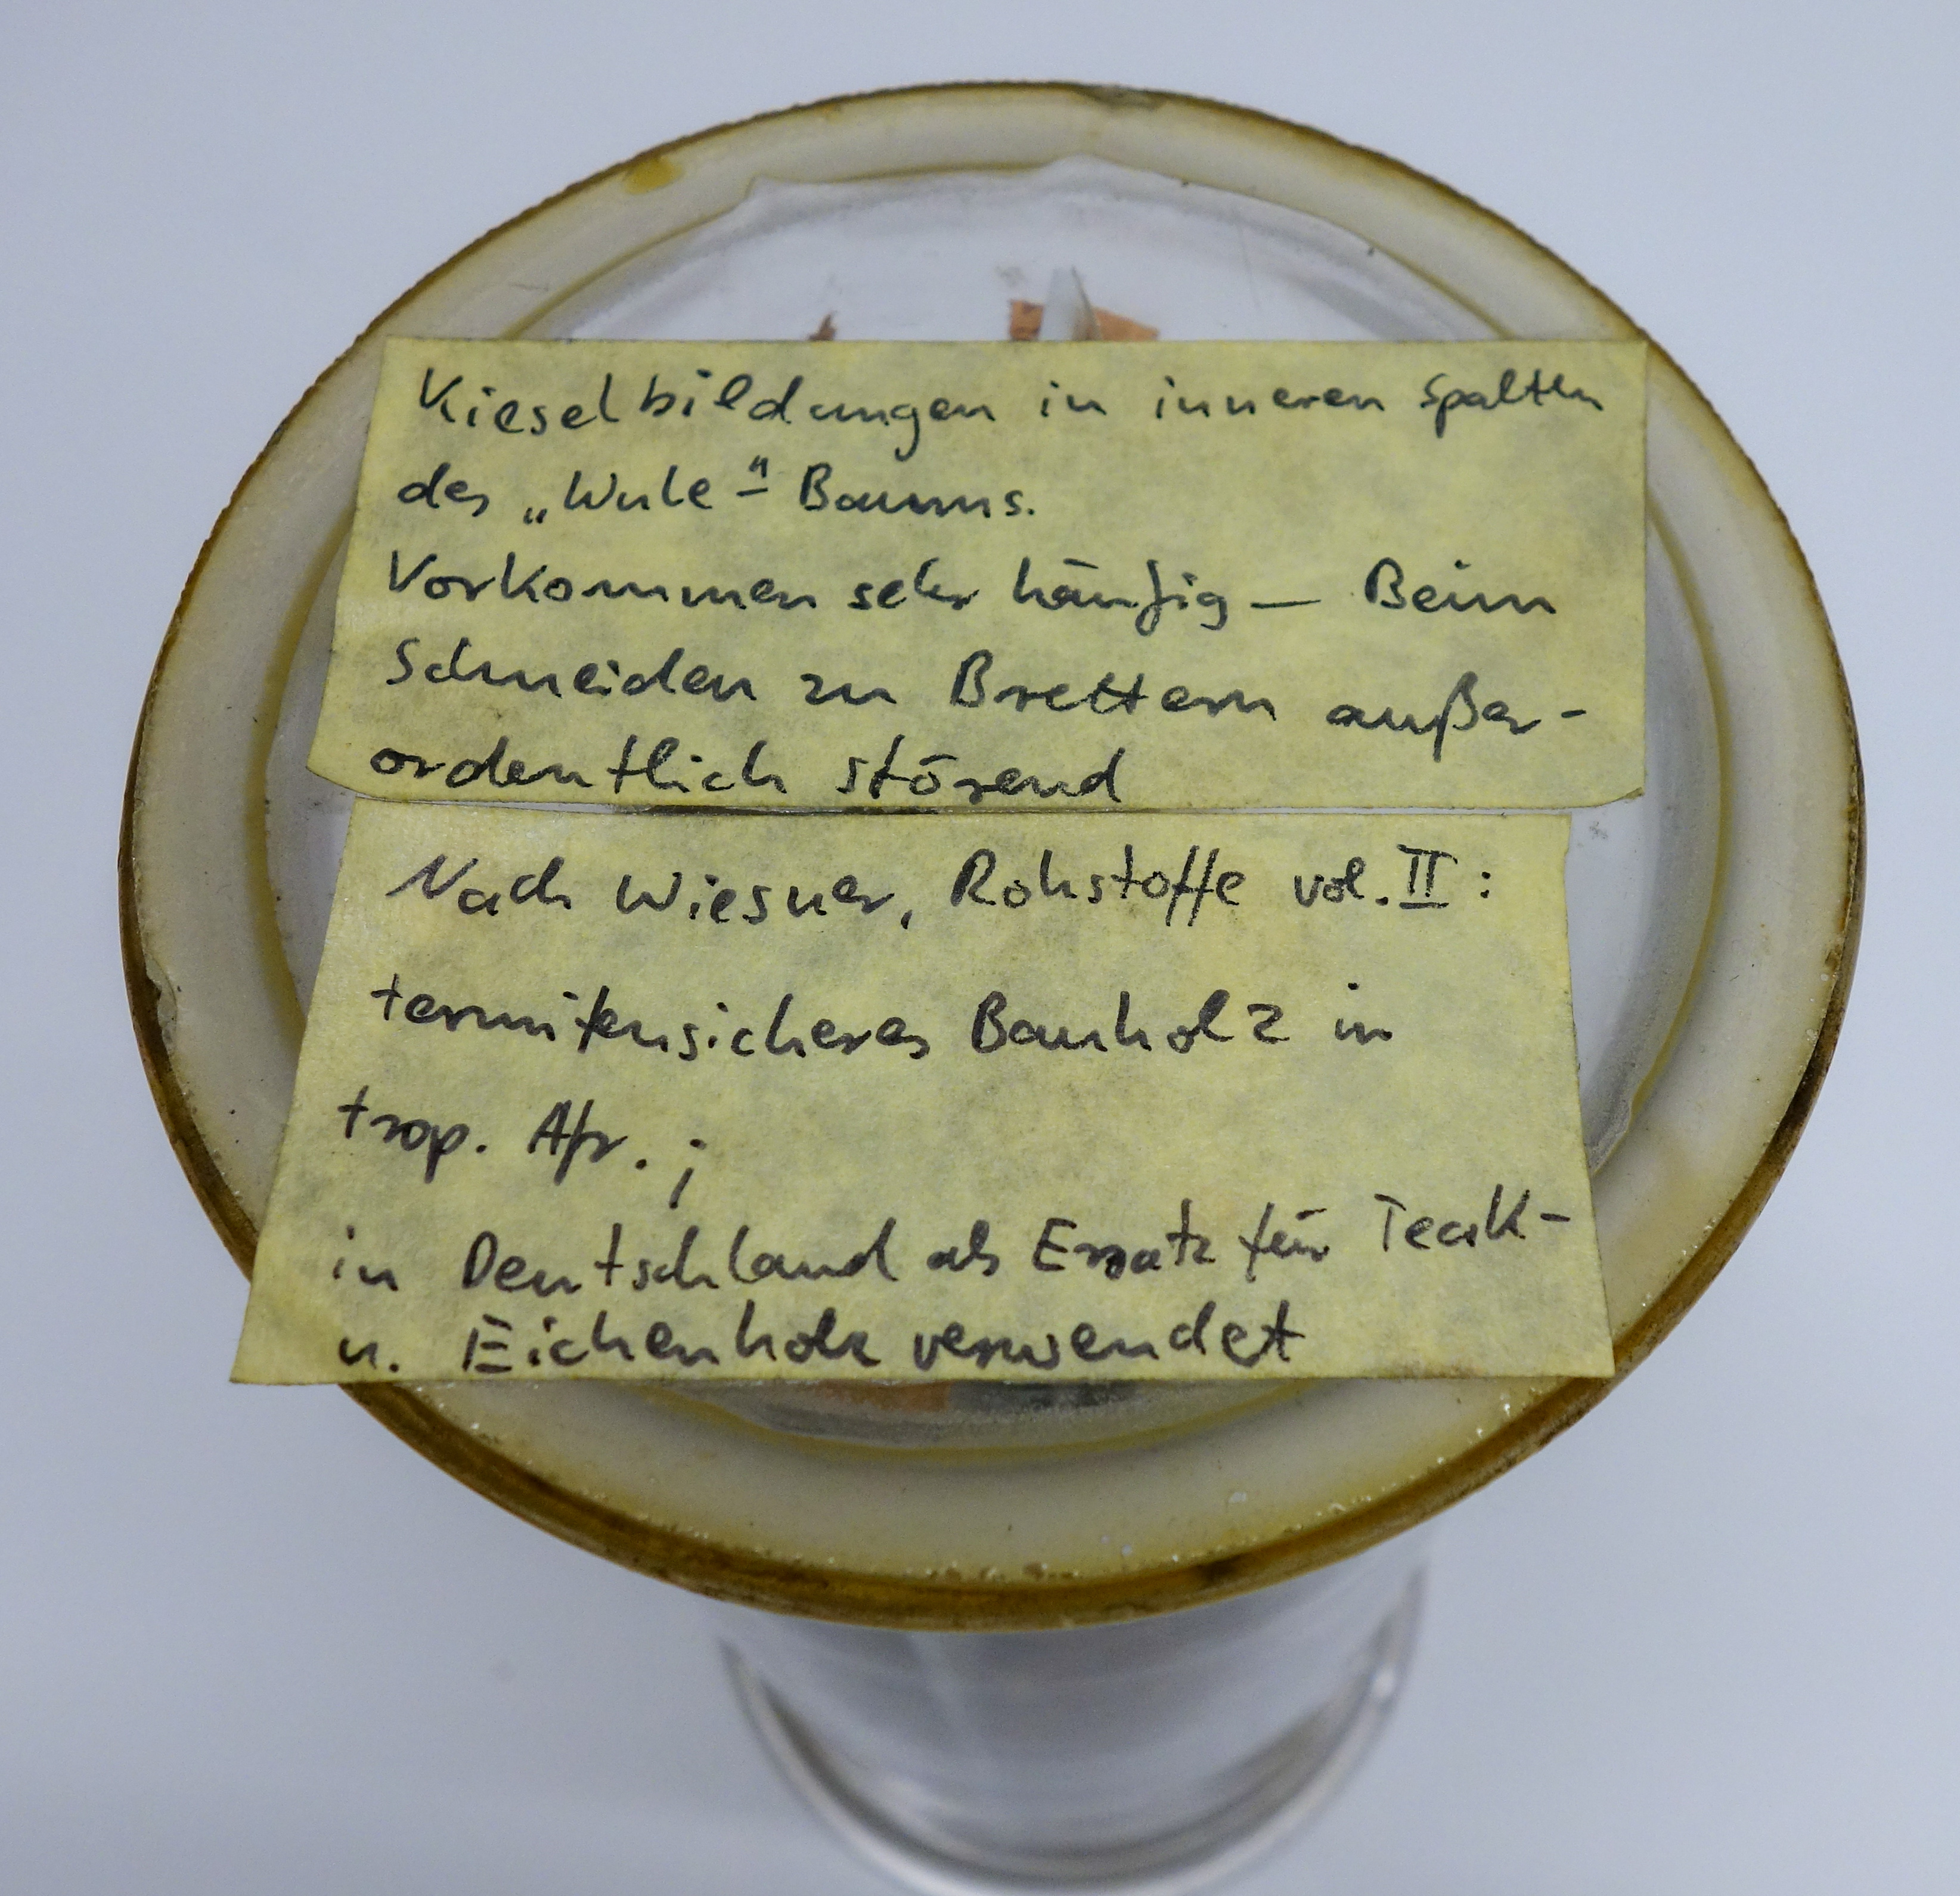 Kieselbildungen in inneren Spalten
des „Wule"-Baums.
Vorkommen sehr häufig — Beim
Schneiden zu Brettern außer-
ordentlich störend
Nach Wiesner, Rohstoffe vol. II:
termitensicheres Bauholz in
trop. Afr.;
in Deutschland als Ersatz für Teak-
u. Eichenholz verwendet